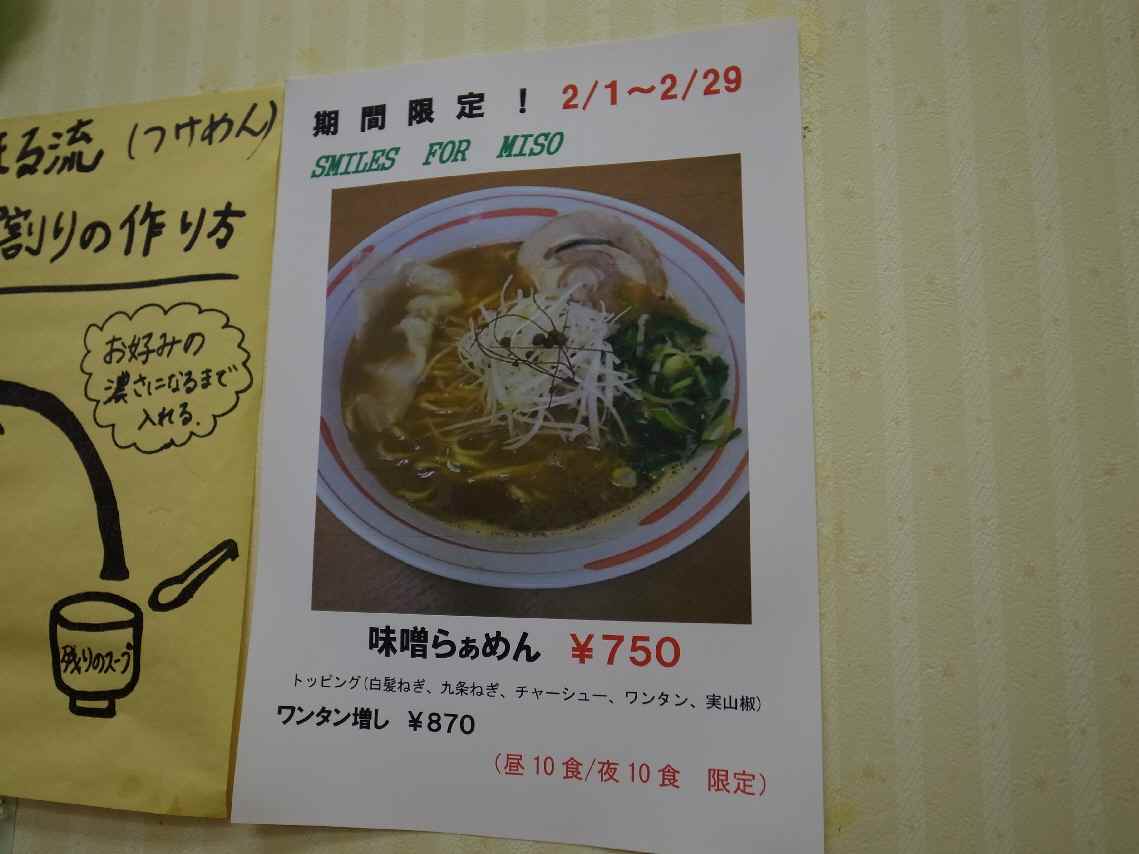 る流 (つけめん)
割りの作り方
お好みの
濃さになるまで
入れる.
残りのスープ
期間限定! 2/1~2/29
SMILES FOR MISO
味噌らぁめん ¥750
トッピング(白髪ねぎ、九条ねぎ、チャーシュー、ワンタン、実山椒)
ワンタン増し ¥870
(昼10食/夜10食 限定)